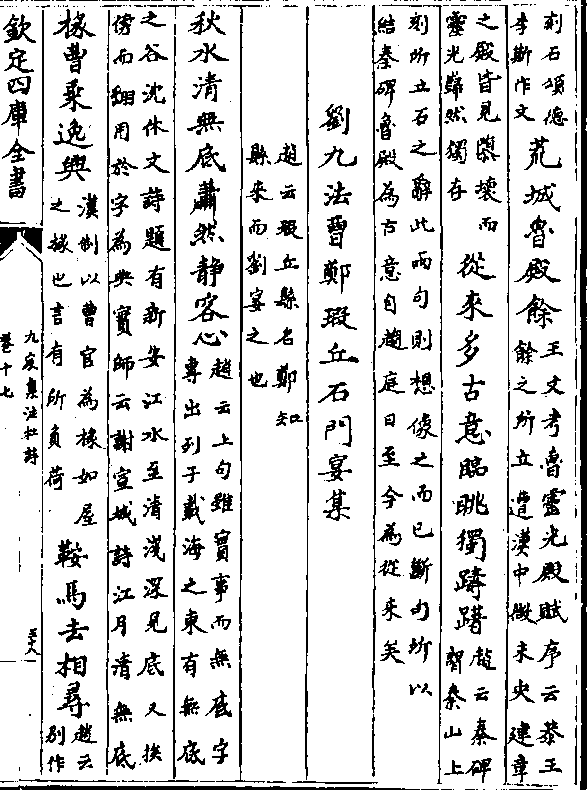 刻石頌德
李斯作文
荒城魯殿餘
王文考魯靈光殿賦序云恭王
餘之所立遭漢中微未央建章
之殿皆見隳壊而
靈光歸然獨存
從來多古意臨眺獨躊躇
趙云秦碑
謂秦山上
刻所立石之辭此兩句則想像之而已斷句所以
結秦碑魯殿為古意自趨庭日至今為從來矣
劉九法曹鄭瑕丘石門宴集
趙云瑕丘縣名鄭知
縣來而劉宴之也
秋水清無底蕭然静客心
趙云上句雖實事而無底字
專出列子載海之東有無底
之谷沈休文詩題有新安江水至清淺深見底又挨
傍而翻用於字為典實師云謝宣城詩江月清無底
掾曹乗逸興
漢制以曹官為掾如屋
之掾也言有所負荷
鞍馬去相尋
趙云
别作
欽定四庫全書
九家集注杜詩
卷十七
三十八